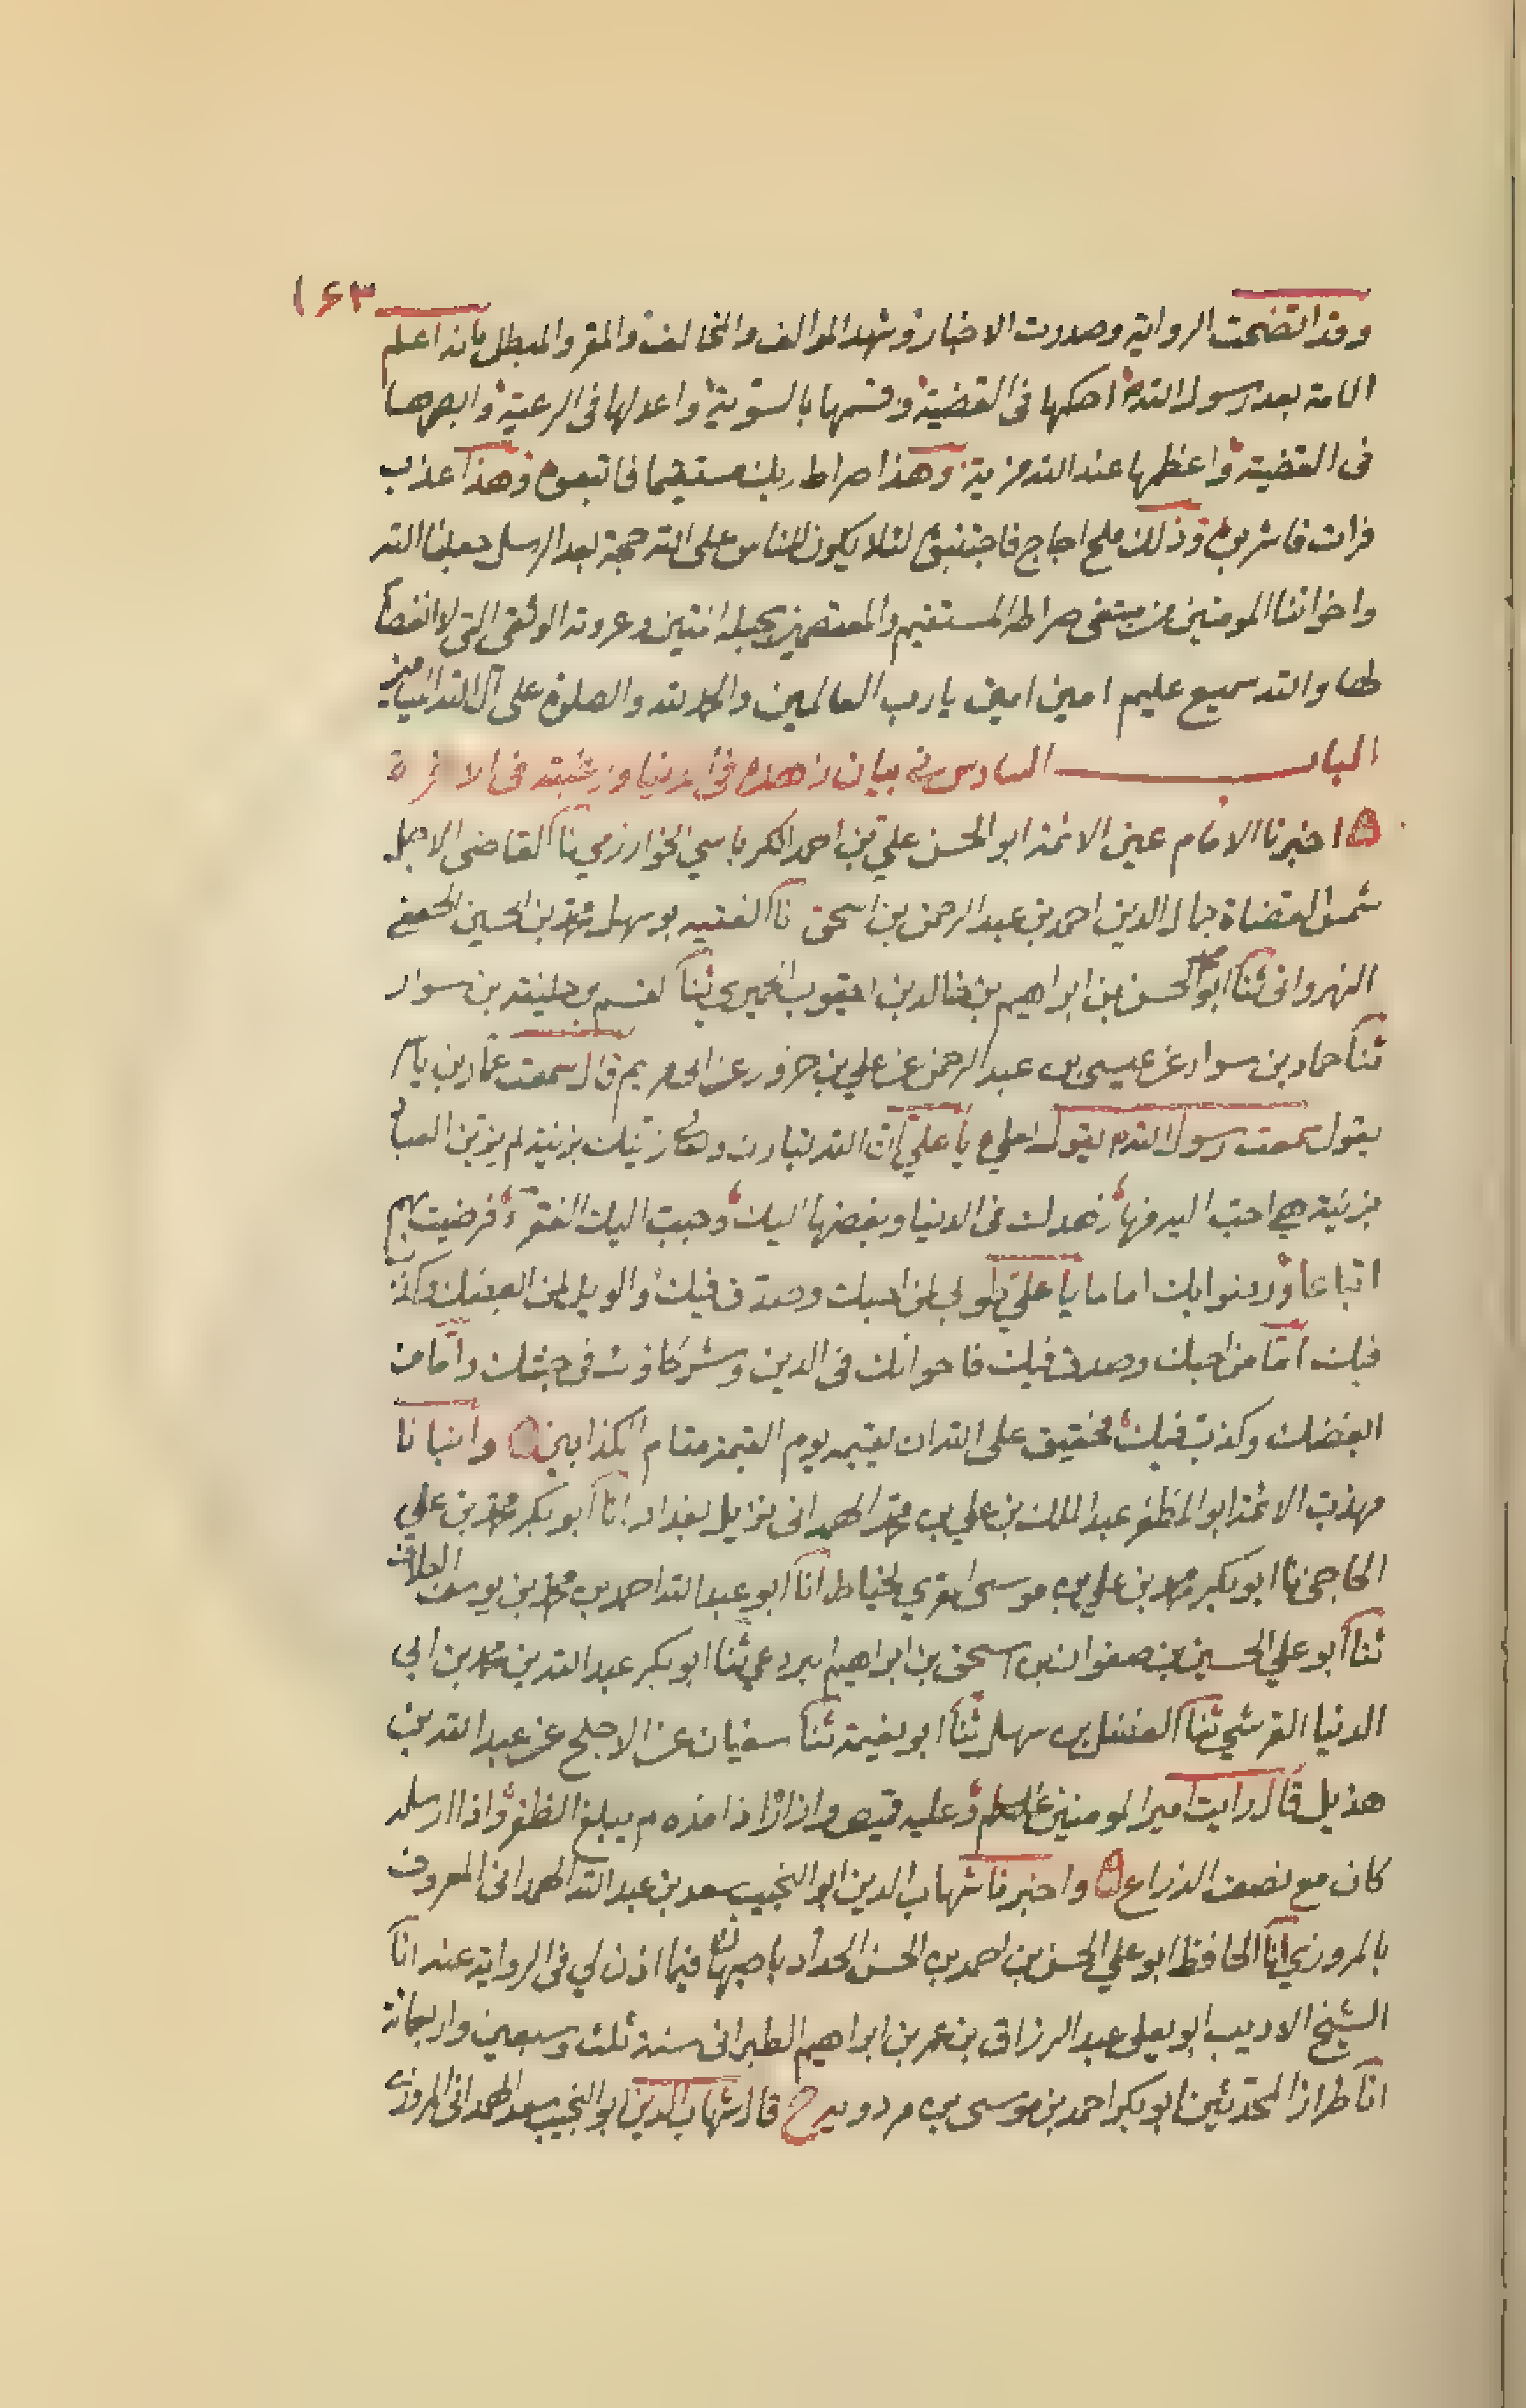 ١٦٣
وقد اتضحت الرواية وصدرت الاخبار وشهد الموالف والمخالف والمقر والمبطل بانه اعلم
الامة بعد رسول الله احكمها فى القضية وقسمها بالسوية واعدلها فى الرعية وابصرها
فى القضية واعظمها عند الله مزية وهذا صراط ربك مستقيما فاتبعوه وهذا عذب
فرات فاشربوه وذلك ملح اجاج فاجتنبوه لئلا يكون للناس على الله حجة بعد الرسل جعلنا الله
واخواننا المومنين من مبتغى صراطه المستقيم والمعتصمين بحبله المتين وعروته الوثقى التى لا انفصام
لها والله سميع عليم امين امين يا رب العالمين والحمد لله والصلوة على
الباب السادس فى بيان زهده فى الدنيا ورغبته فى الاخرة
اخبرنا الامام عين الائمة ابو الحسن علي بن احمد الكرباسي الخوارزمي نا القاضى الاجل
شمس القضاة جمال الدين احمد بن عبد الرحمن بن اسحق نا الفقيه بو سهل محمد بن الحسين
النهروانى ثنا ابو الحسن بن ابراهيم بن خالد بن يعقوب الحميري ثنا القسم بن خليفة بن سوار
ثنا حماد بن سوار عن عيسى بن عبد الرحمن عن علي بن حزور عن ابى مريم قال سمعت عمار بن ياسر
يقول سمعت رسول الله م يقول لعلي ع يا علي ان الله تبارك وتعالى زينك بزينة لم يزين العباد
بزينة هي احب اليه منها زهدك فى الدنيا وبغضها اليك وحبب اليك الفقراء فرضيت بهم
اتباعا ورضوا بك اماما يا علي طوبى لمن احبك وصدق فيك والويل لمن ابغضك وكذب
فيك اما من احبك وصدق فيك فاخوانك فى الدين وشركاؤك فى جنتك واما من
ابغضك وكذب فيك فحقيق على الله ان يقيمه يوم القيمة مقام الكذابين وانبانا
مهذب الائمة ابو المظفر عبد الملك بن علي بن محمد الهمدانى نزيل بغداد انا ابو بكر محمد بن علي
الحاجى نا ابو بكر محمد بن علي بن موسى المقري الخياط انا ابو عبد الله احمد بن محمد بن يوسف العلاف
ثنا ابو علي الحسين بن صفوان بن اسحق بن ابراهيم البردعي ثنا ابو بكر عبد الله بن محمد بن ابي
الدنيا القرشي ثنا الفضل بن سهل ثنا ابو نعيم ثنا سفيان عن الاجلح عن عبد الله بن
هذيل قال رايت امير المومنين وعليه قميص وازار اذا مده م يبلغ الظفر واذا ارسله
كان مع نصف الذراع واخبرنا شهاب الدين ابو النجيب سعد بن عبد الله الهمدانى المعروف
بالمروزي انا الحافظ ابو علي الحسن بن احمد بن الحسن الحداد باصبهان فيما اذن لي فى الرواية عنه انا
الشيخ الاديب ابو يعلى عبد الرزاق بن عمر بن ابراهيم الطبرانى سنة ثلث وسبعين واربعمائة
انا طراز المحدثين ابو بكر احمد بن موسى بن مردويه ح قال شهاب الدين ابو النجيب سعد الهمدانى المروزي